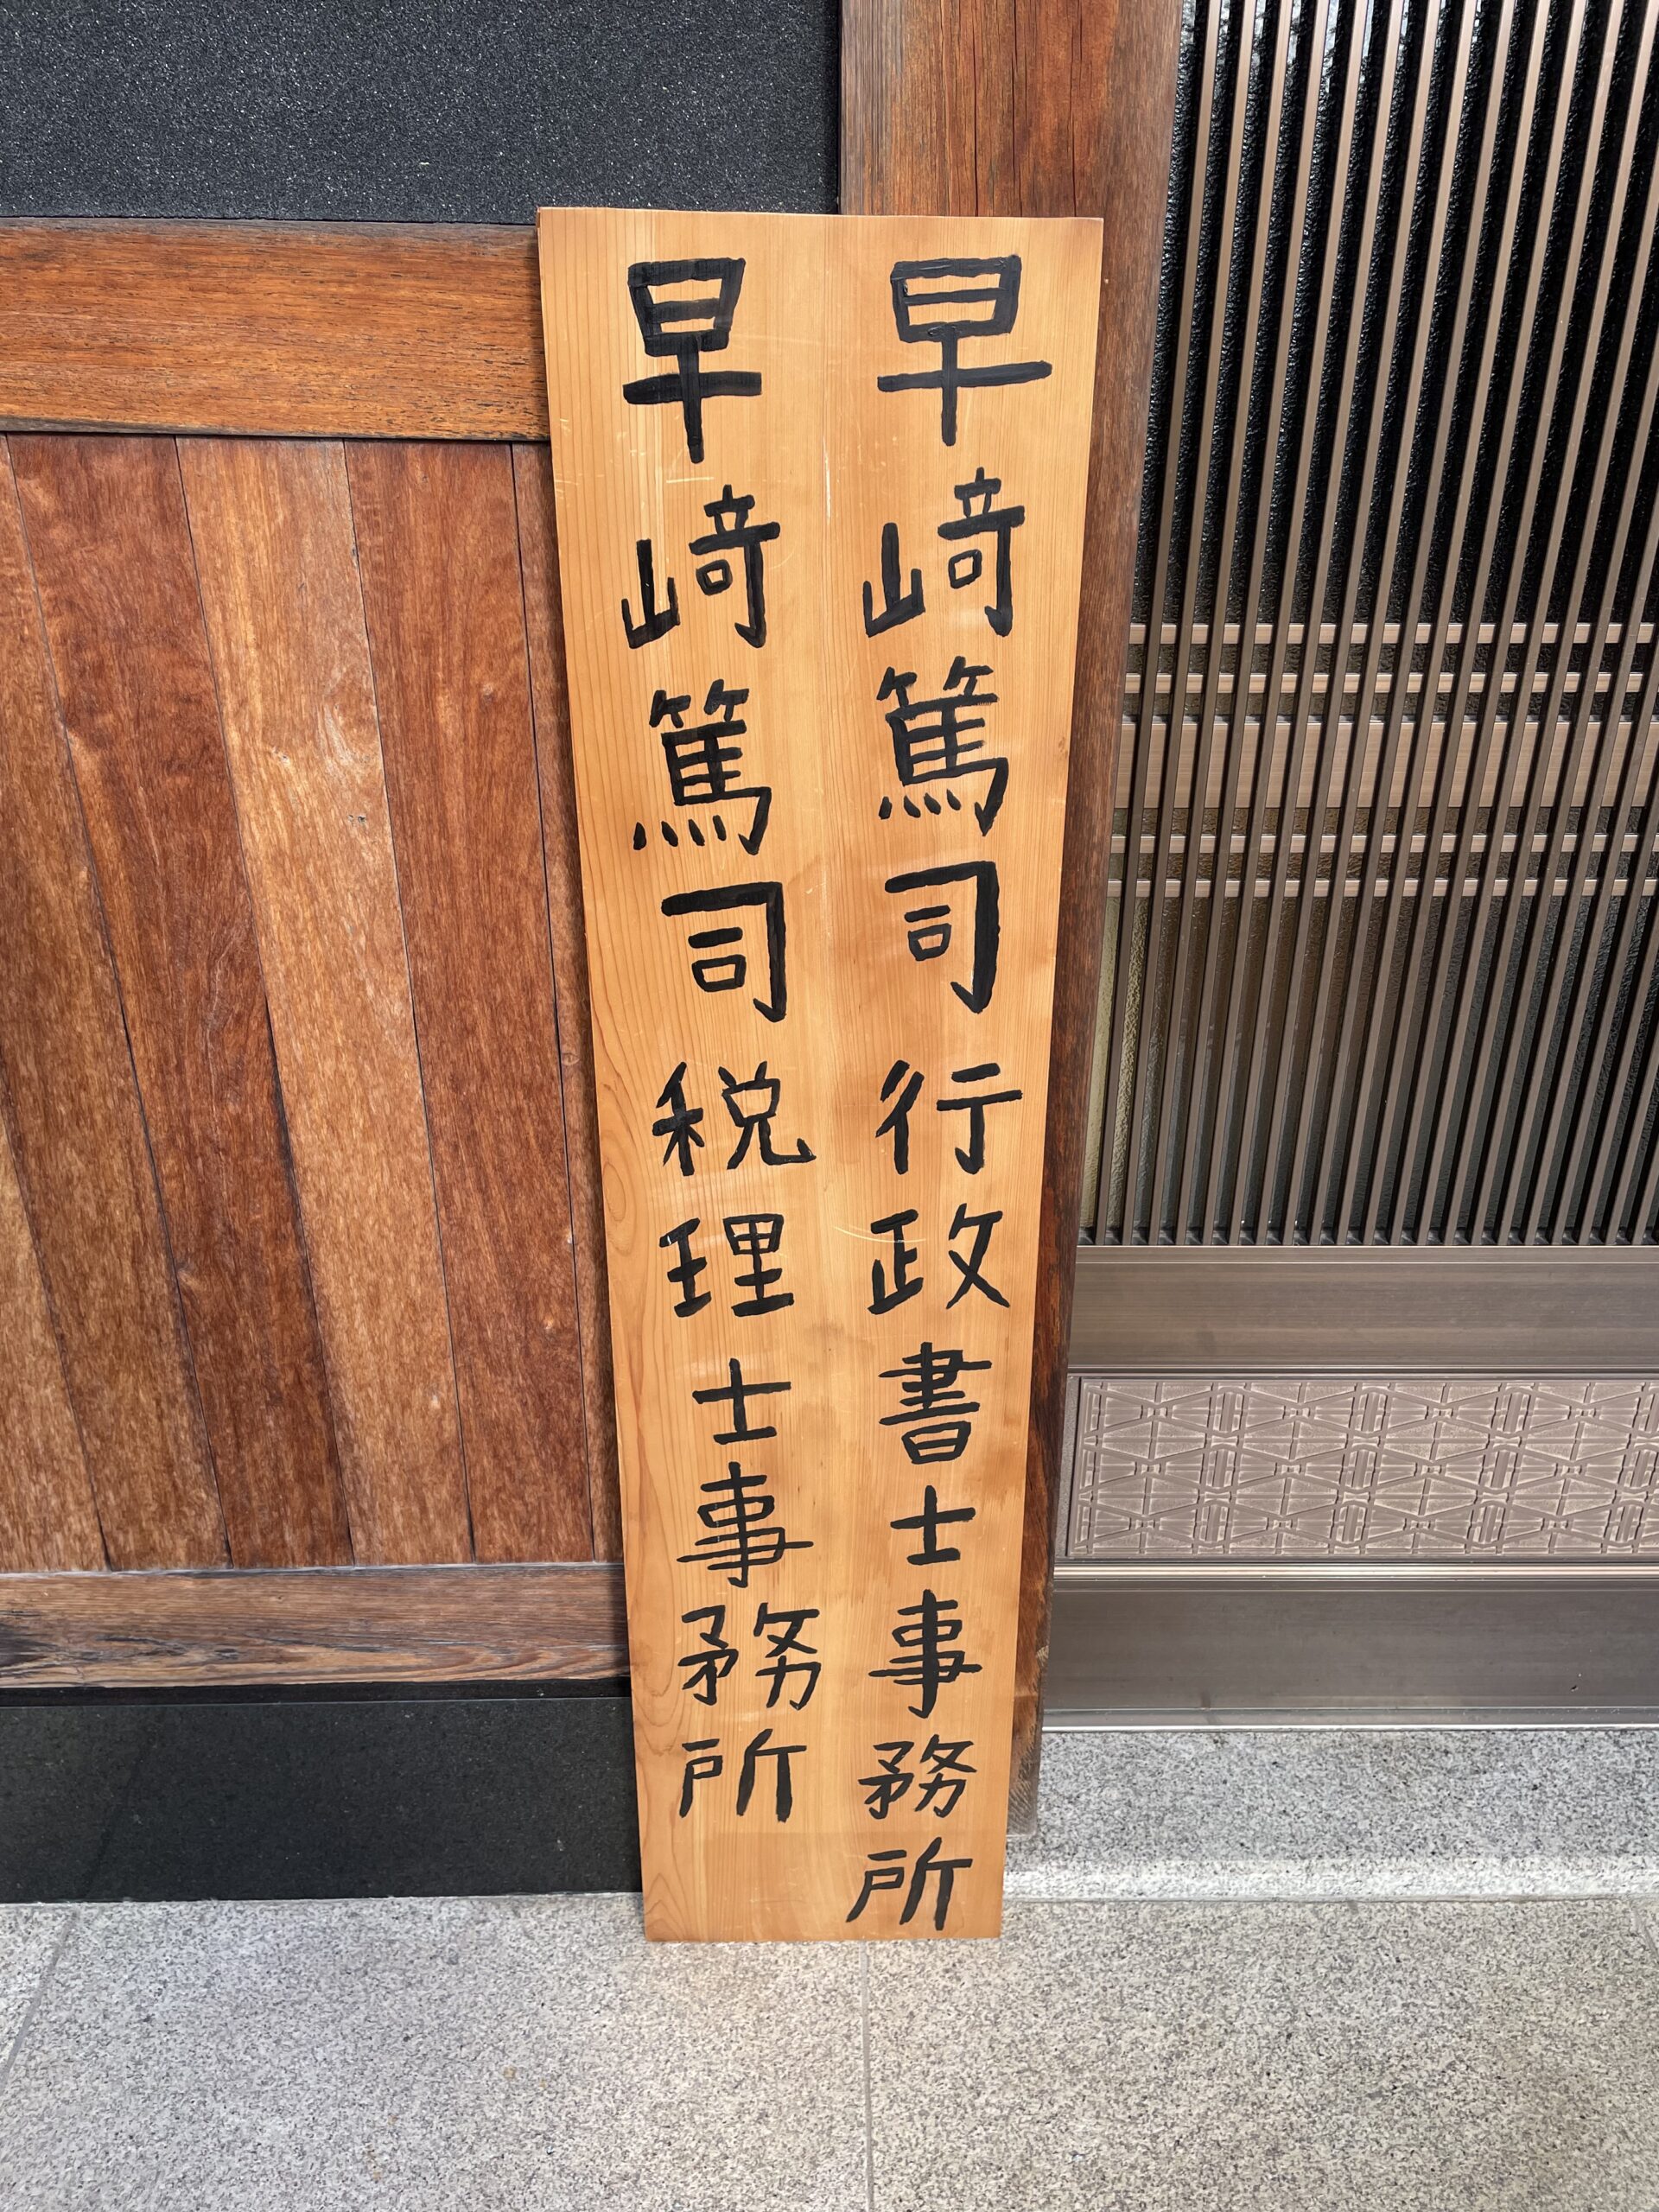 早﨑篤司行政書士事務所
早﨑篤司税理士事務所